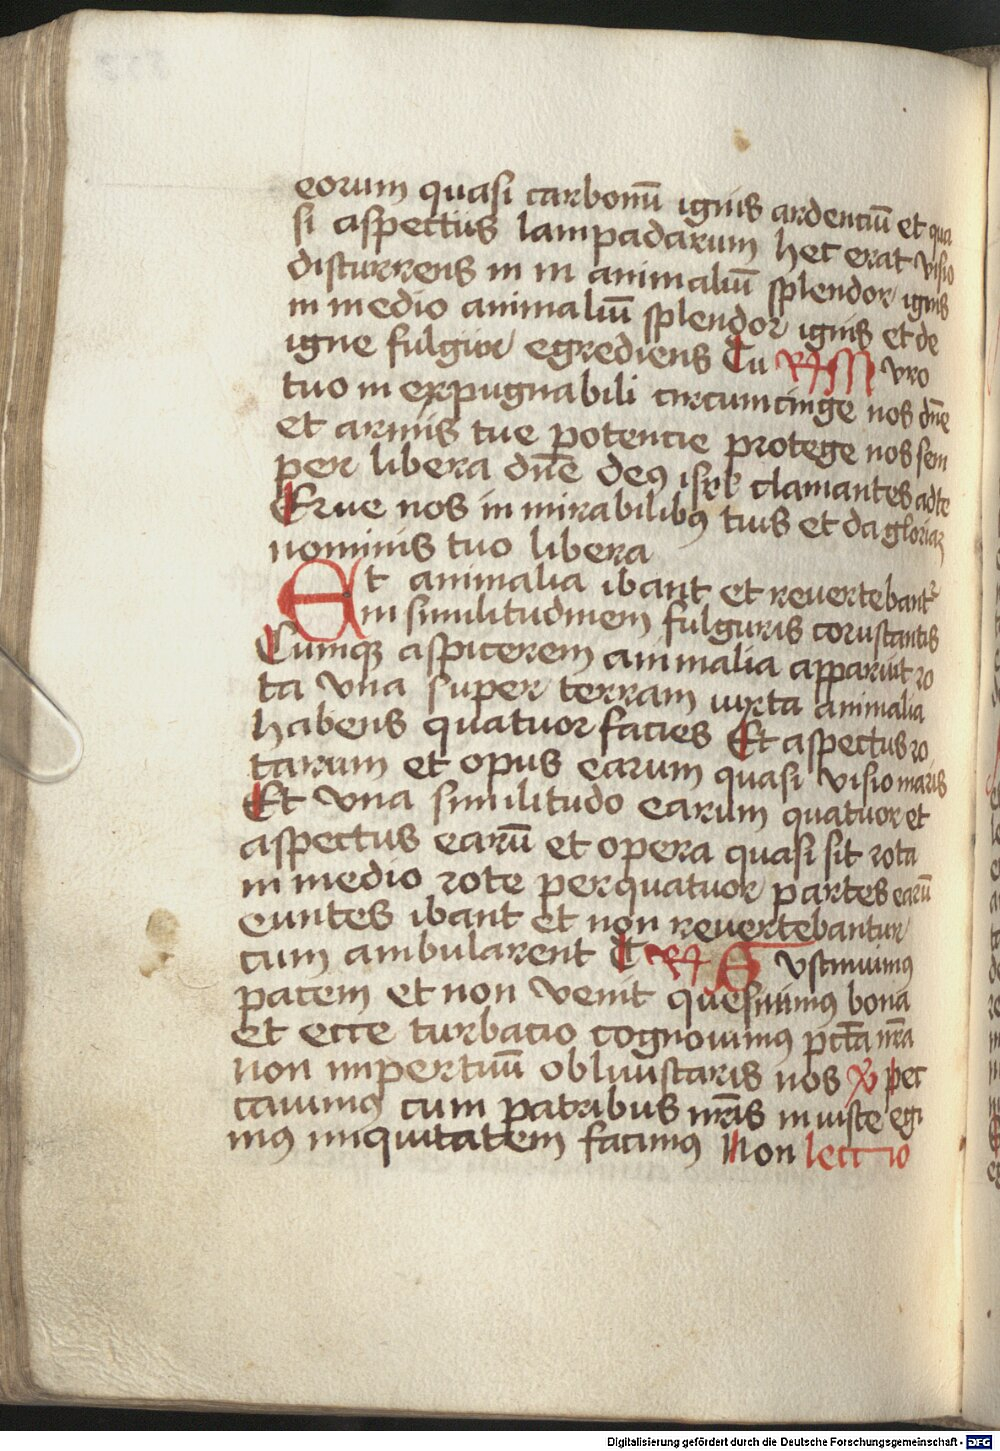 eorum quasi carbonū ignis ardenciū et qua
si aspectus lampadarum hec erat visio
discurrens in m animaliū splendor ignis
in medio animaliū splendor ignis et de
igne fulgur egrediens Tu Muro
tuo in expugnabili circumcinge nos dn̄e
et armis tue potencie protege nos sem
per libera dn̄e deꝰ isrl clamantes ad te
Erue nos in mirabilibꝰ tuis et da gloriaꝫ
nominis tuo libera
Et animalia ibant et reuertebant᷑
in similitudinem fulguris coruscantis
Cumqꝫ aspicerem animalia apparuit ro
ta vna super terram iuxta animalia
habens quatuor facies Et aspectus ro
tarum et opus earum quasi visio maris
Et vna similitudo earum quatuor et
aspectus earū et opera quasi sit rota
in medio rote per quatuor partes earū
euntes ibant et non reuertebantur
cum ambularent T Sustinuimꝰ
pacem et non venit quesiuimꝰ bona
et ecce turbacio cognouimꝰ pctā nrā
non inpertuū obliuiscaris nos ℣ pec
cauimꝰ cum patribus nrīs iniuste egi
mꝰ iniquitatem facimꝰ Non lectio
Digitalisierung gefördert durch die Deutsche Forschungsgemeinschaft - DFG